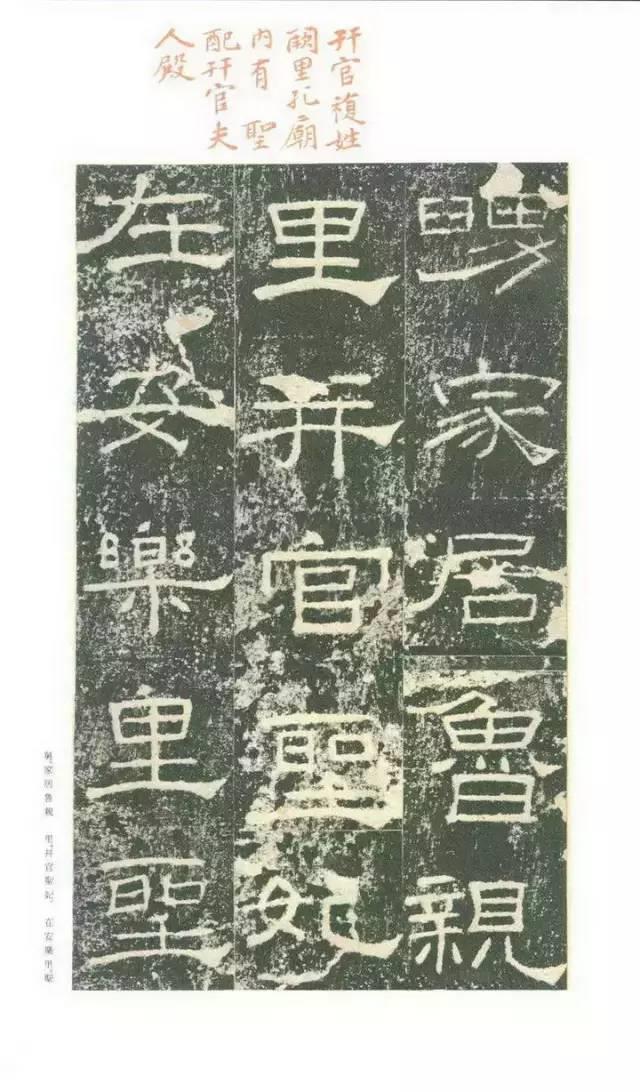 幵官複姓
闕里孔廟
内有聖
配幵官夫
人殿
舅家居魯親
里并官聖妃
在安樂里聖
舅家居魯親 里,并官聖妃, 在安樂里,聖